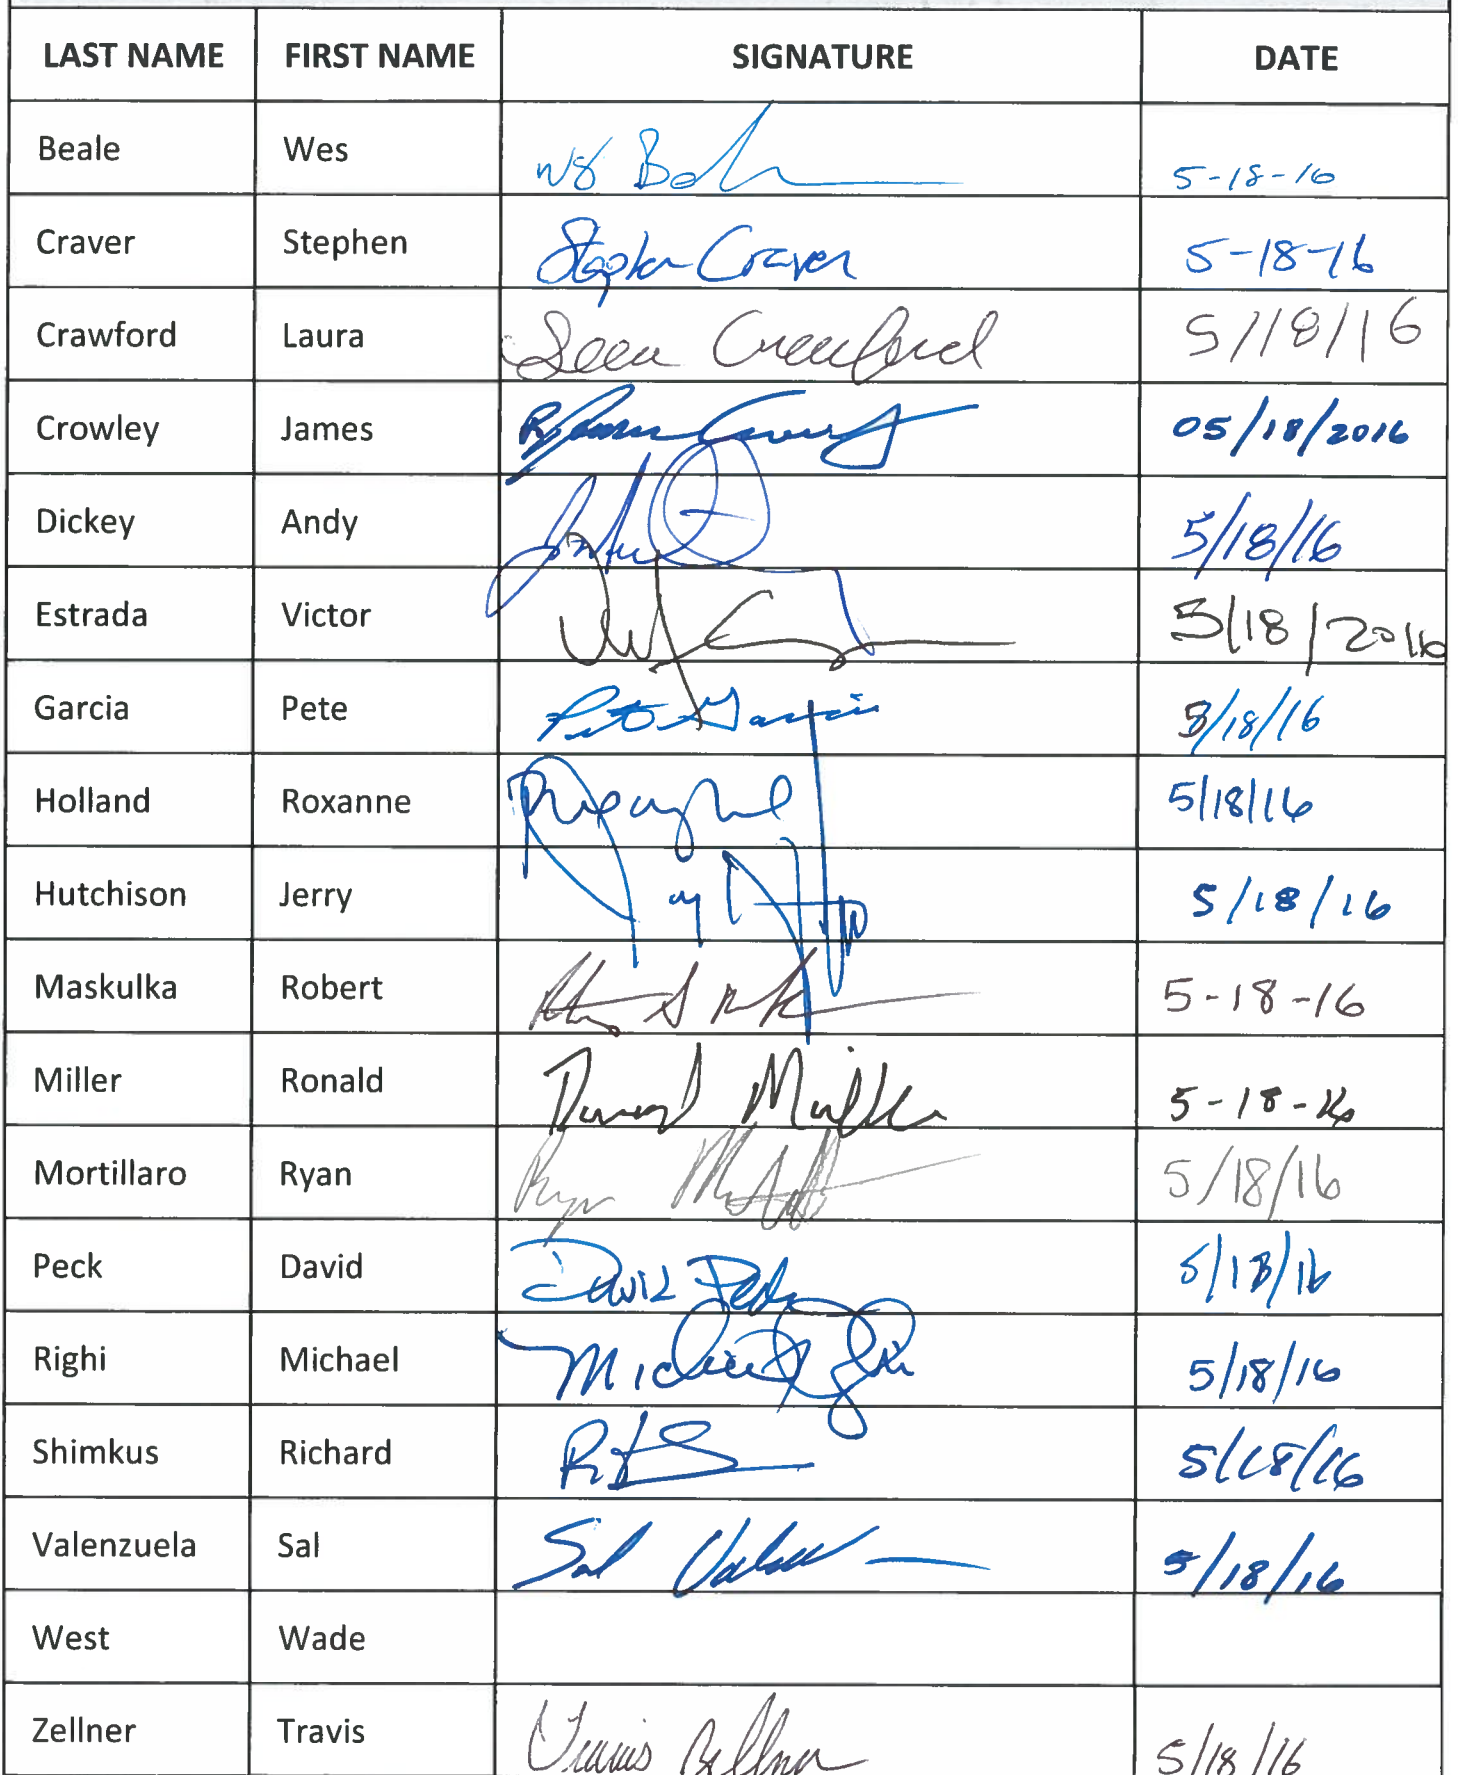 LAST NAME FIRST NAME SIGNATURE DATE
Beale Wes 5-18-16
Craver Stephen Stephen Craver 5-18-16
Crawford Laura Crawford 5/18/16
Crowley James 05/18/2016
Dickey Andy 5/18/16
Estrada Victor 5/18/2016
Garcia Pete Pete Garcia 5/18/16
Holland Roxanne 5/18/16
Hutchison Jerry 5/18/16
Maskulka Robert 5-18-16
Miller Ronald 5-18-16
Mortillaro Ryan Ryan 5/18/16
Peck David David Peck 5/18/16
Righi Michael Michael 5/18/16
Shimkus Richard 5/18/16
Valenzuela Sal Sal 5/18/16
West Wade
Zellner Travis Travis Zellner 5/18/16